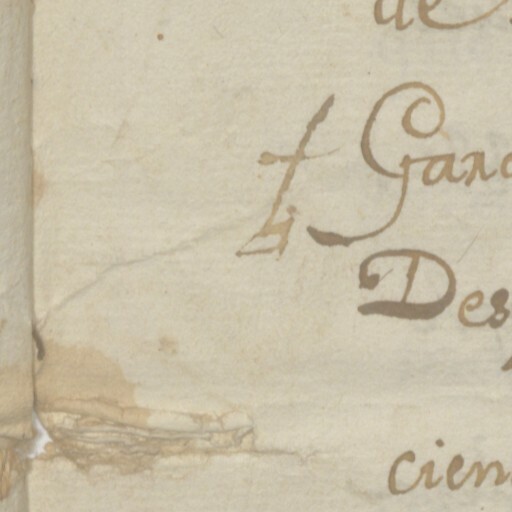 de
Garc
Des
cien